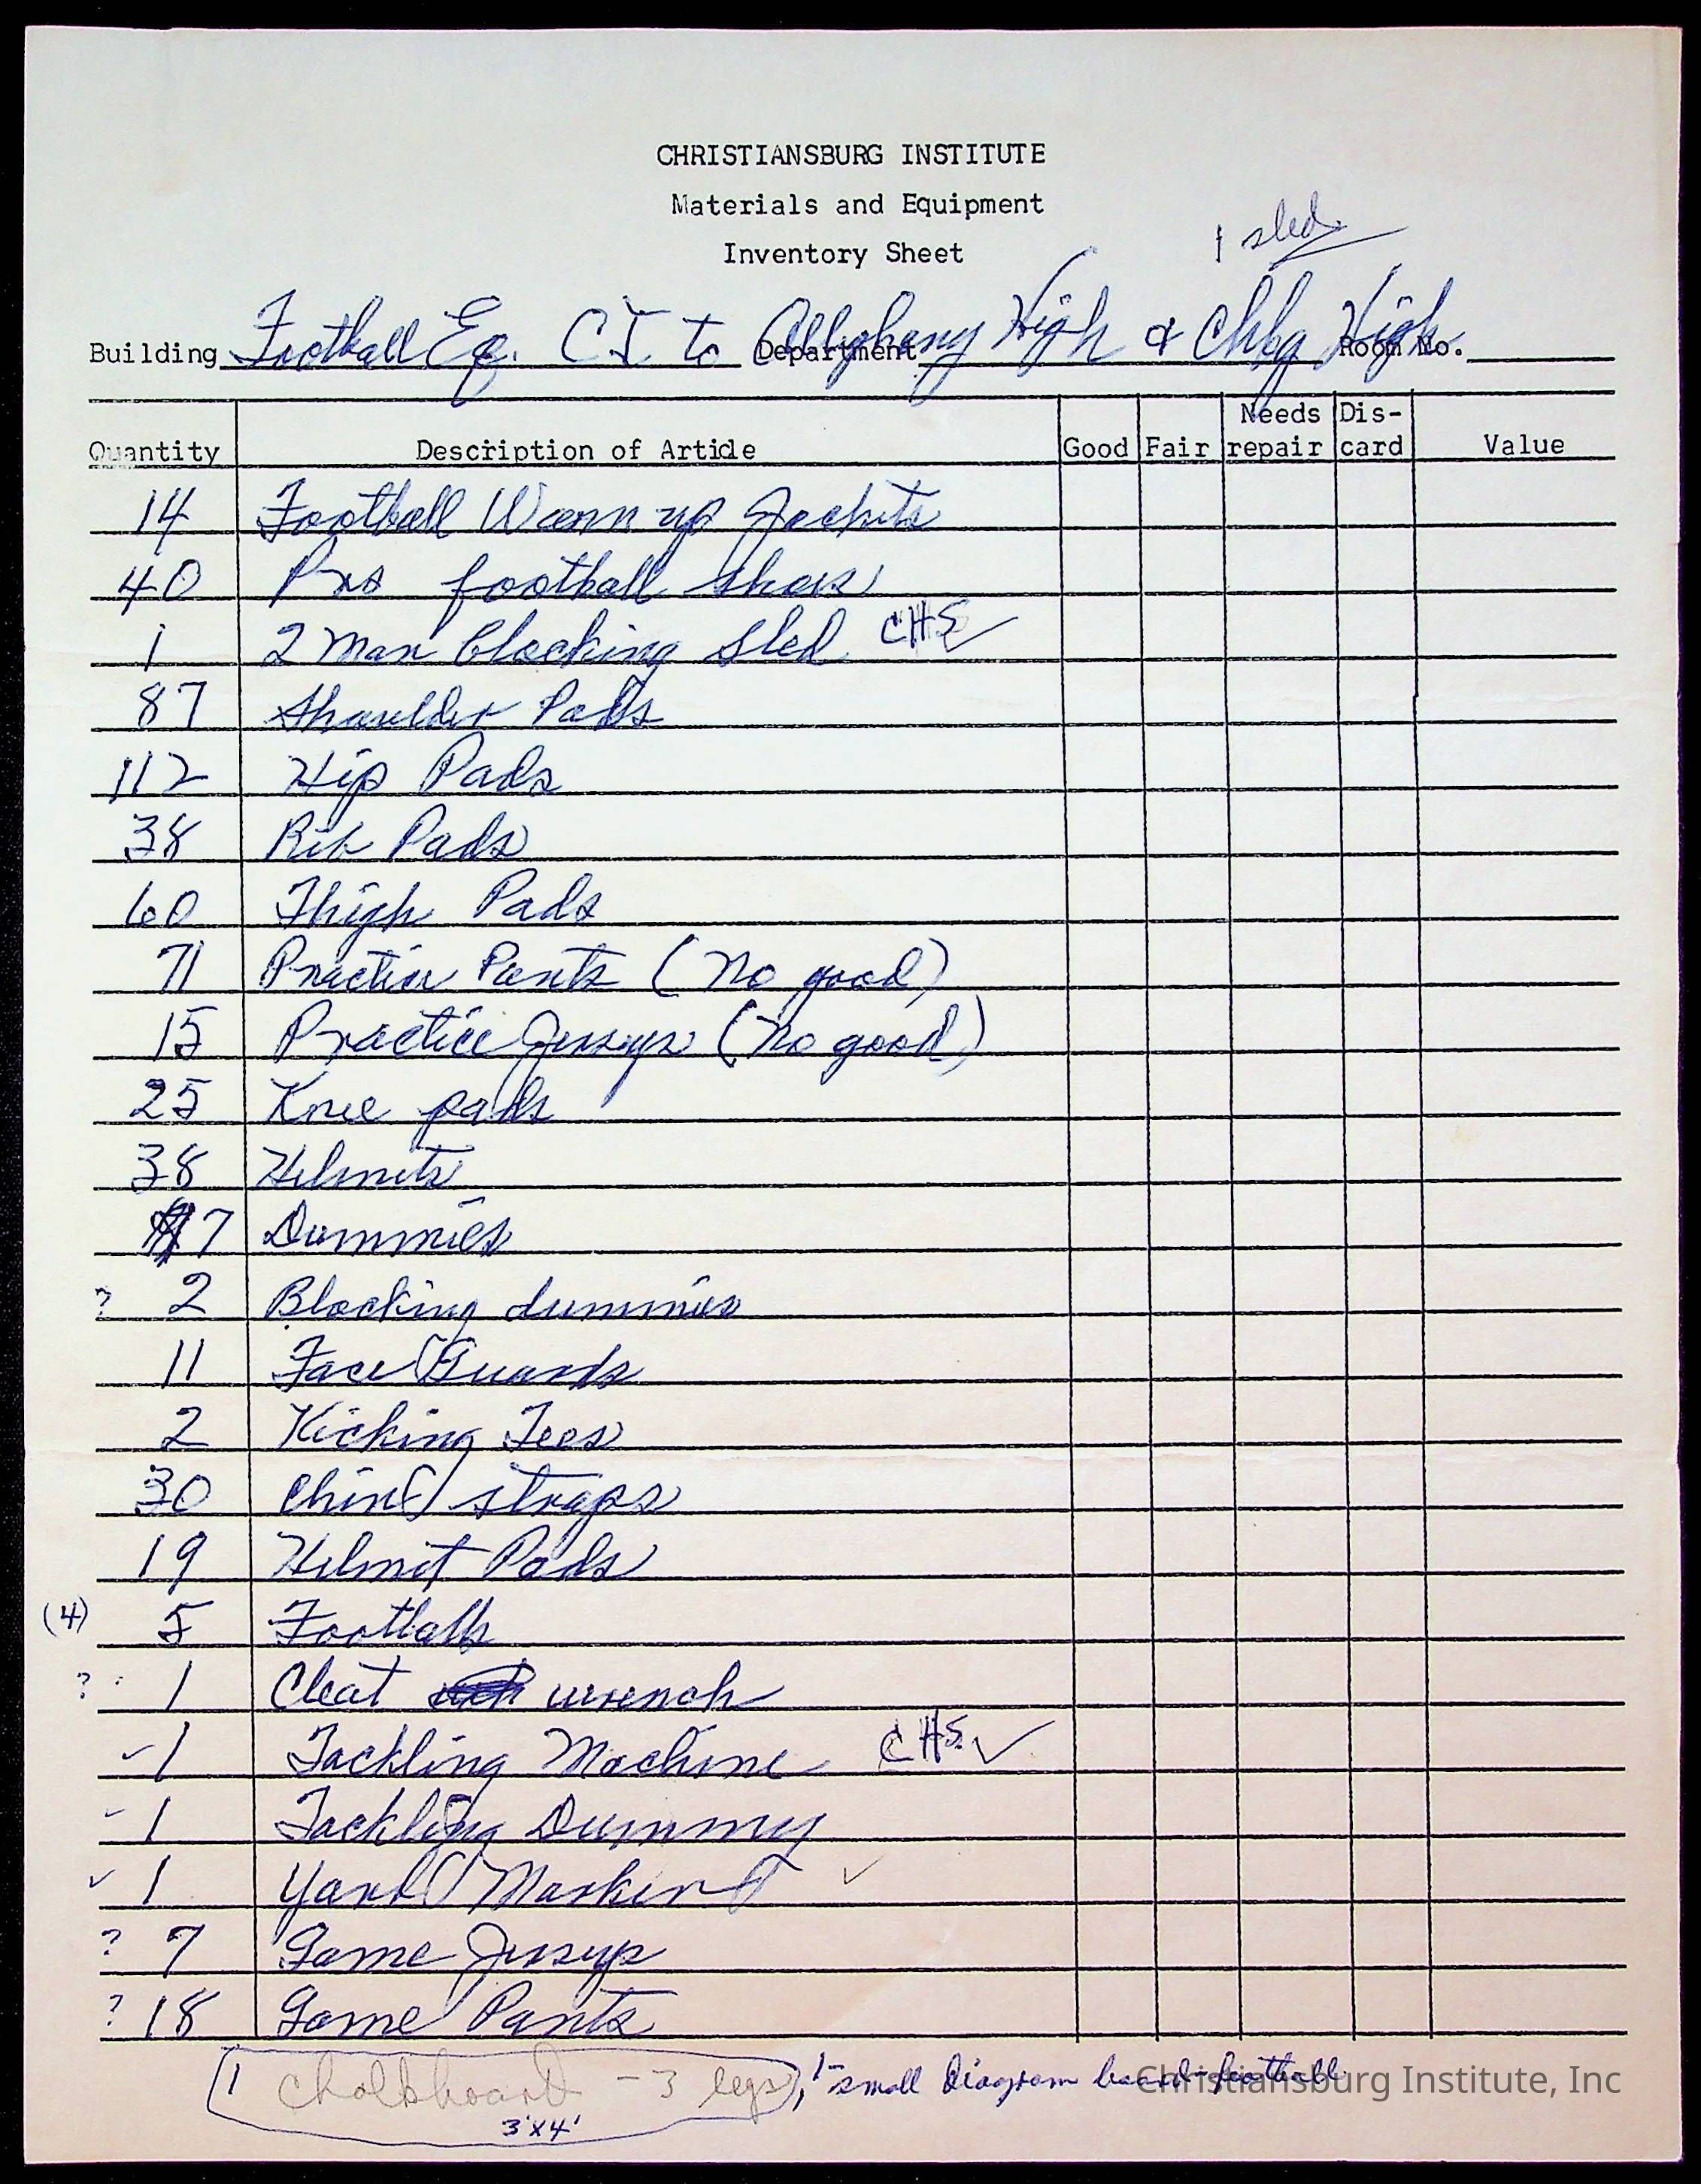 CHRISTIANSBURG INSTITUTE
Materials and Equipment
1 sled
Inventory Sheet
Building Football Eq. CI to Department Alleghany High & Chbg High Room No.
Quantity Description of Article Good Fair Needs repair Dis-card Value
14 Football Warm up Jackets
40 Prs football shoes
1 2 Man blocking Sled CHS ✓
87 Shoulder Pads
112 Hip Pads
38 Rib Pads
60 Thigh Pads
71 Practice Pants (No good)
15 Practice Jerseys (No good)
25 Knee pads
38 Helmets
7 Dummies
? 2 Blocking dummies
11 Face Guards
2 Kicking Tees
30 Chin straps
19 Helmet Pads
(4) 5 Footballs
? 1 Cleat wrench
✓ 1 Tackling Machine CHS ✓
✓ 1 Tackling Dummy
✓ 1 Yard Marker ✓
? 7 Game Jerseys
? 18 Game Pants
1 Chalkboard - 3 legs, 1- small Diagram board-football
3'x4'
Christiansburg Institute, Inc